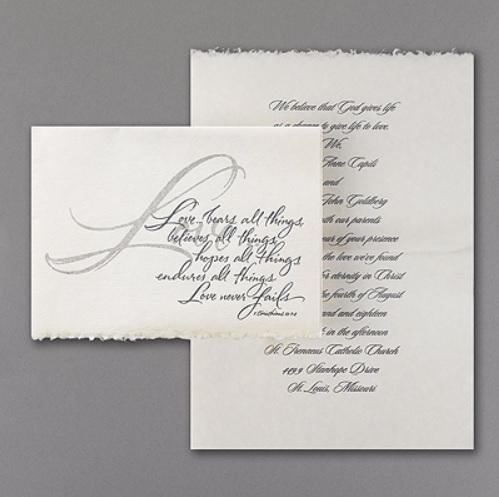 Love
Love...bears all things,
believes all things,
hopes all things,
endures all things.
Love never fails.
We believe that God gives life
as a chance to give life to love.
We,
Anne Capili
and
John Goldberg
our parents
of your presence
the love we've found
eternity in Christ
the fourth of August
and eighteen
in the afternoon
St. Irenaeus Catholic Church
Stanhope Drive
St. Louis, Missouri